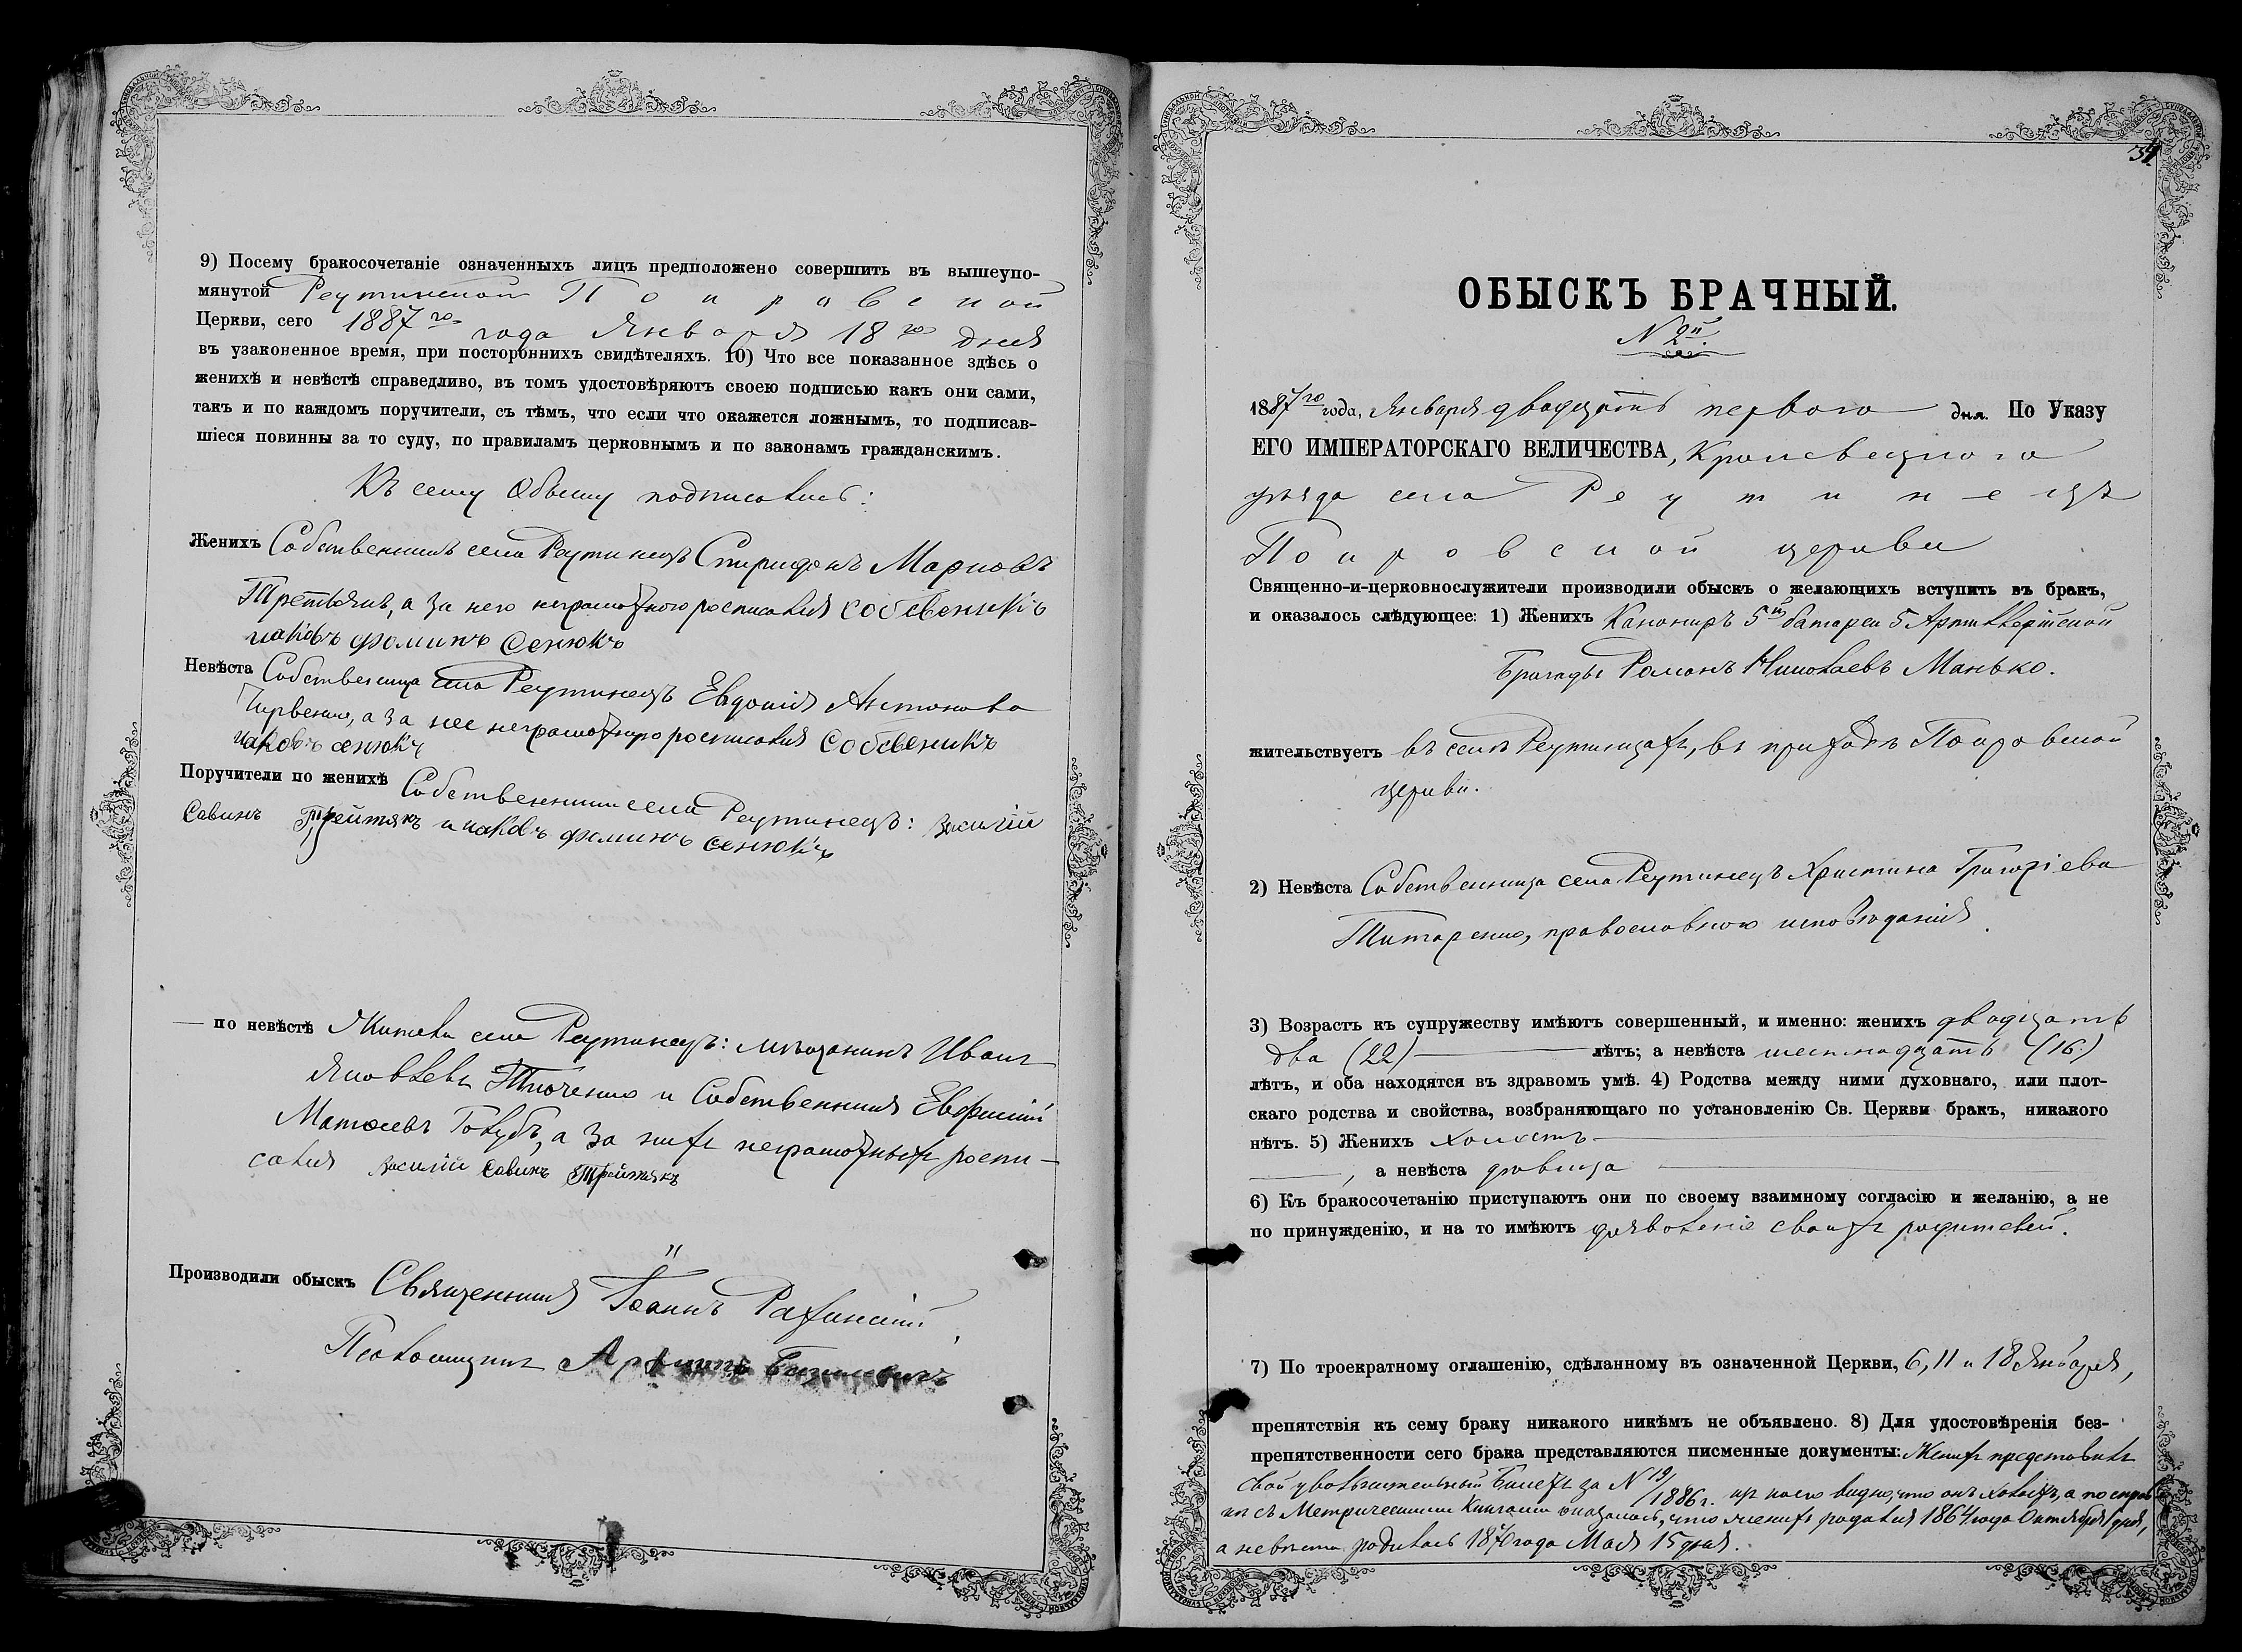 9) Посему бракосочетаніе означенныхъ лицъ предположено совершить въ вышеупо-
мянутой Реутинской Покровской
Церкви, сего 1887го года Января 18го дня
въ узаконенное время, при постороннихъ свидѣтеляхъ. 10) Что все показанное здѣсь о
женихѣ и невѣстѣ справедливо, въ томъ удостовѣряютъ своею подписью какъ они сами,
такъ и по каждомъ поручители, съ тѣмъ, что если что окажется ложнымъ, то подписав-
шіеся повинны за то суду, по правиламъ церковнымъ и по законамъ гражданскимъ.
Къ сему Обыску подписались:
Женихъ Собственникъ села Реутинецъ Спиридонъ Марковъ
Третьякъ, а за него неграмотного росписался собсвеникъ
иаковъ фоминъ сенюкъ
Невѣста Собственица села Реутинецъ Евдокія Антонова
а за нее неграмотную росписался собсвеникъ
иаковъ сенюкъ
Поручители по женихѣ Собственники села Реутинецъ: Василій
Савинъ Трейтякъ и иаковъ фоминъ сенюкъ
по невѣстѣ Жители села Реутинецъ: мѣщанинъ Иванъ
Яковлевъ и Собственникъ Евфимій
Матвеевъ Голубъ, а за нихъ неграмотныхъ роспи-
сался Василій Савинъ Трейтякъ
Производили обыскъ Священникъ Іоаннъ
Псаломщикъ
34
ОБЫСКЪ БРАЧНЫЙ.
N 2й.
1887го года, Января двадцать первого дня. По Указу
ЕГО ИМПЕРАТОРСКАГО ВЕЛИЧЕСТВА, Кролевецкого
уѣзда села Реутинецъ
Покровской церкви
Священно-и-церковнослужители производили обыскъ о желающихъ вступить въ бракъ,
и оказалось слѣдующее: 1) Женихъ Канониръ 5й батареи 5 Артиллерійской
Бригады Романъ Николаевъ Манько.
жительствуетъ въ селѣ Реутинцахъ, въ приходѣ Покровской
церкви.
2) Невѣста Собственница села Реутинецъ Христина Григоріева
Титаренко, православного исповѣданія.
3) Возрастъ къ супружеству имѣютъ совершенный, и именно: женихъ двадцать
два (22) лѣтъ; а невѣста шестнадцать (16)
лѣтъ, и оба находятся въ здравомъ умѣ. 4) Родства между ними духовнаго, или плот-
скаго родства и свойства, возбраняющаго по установленію Св. Церкви бракъ, никакого
нѣтъ. 5) Женихъ холостъ
, а невѣста дѣвица
6) Къ бракосочетанію приступаютъ они по своему взаимному согласію и желанію, а не
по принужденію, и на то имѣютъ дозволеніе своихъ родителей.
7) По троекратному оглашенію, сдѣланному въ означенной Церкви, 6, 11 и 18 Января,
препятствія къ сему браку никакого никѣмъ не объявлено. 8) Для удостовѣренія без-
препятственности сего брака представляются писменные документы: Женихъ представилъ
свой увольнительный билетъ за N 19/1886 г. изъ коего видно, что онъ холостъ, а по справ
кѣ съ Метрическими Книгами оказалось, что женихъ родился 1864 года Октября 1 дня,
а невѣста родилась 1870 года Мая 15 дня.